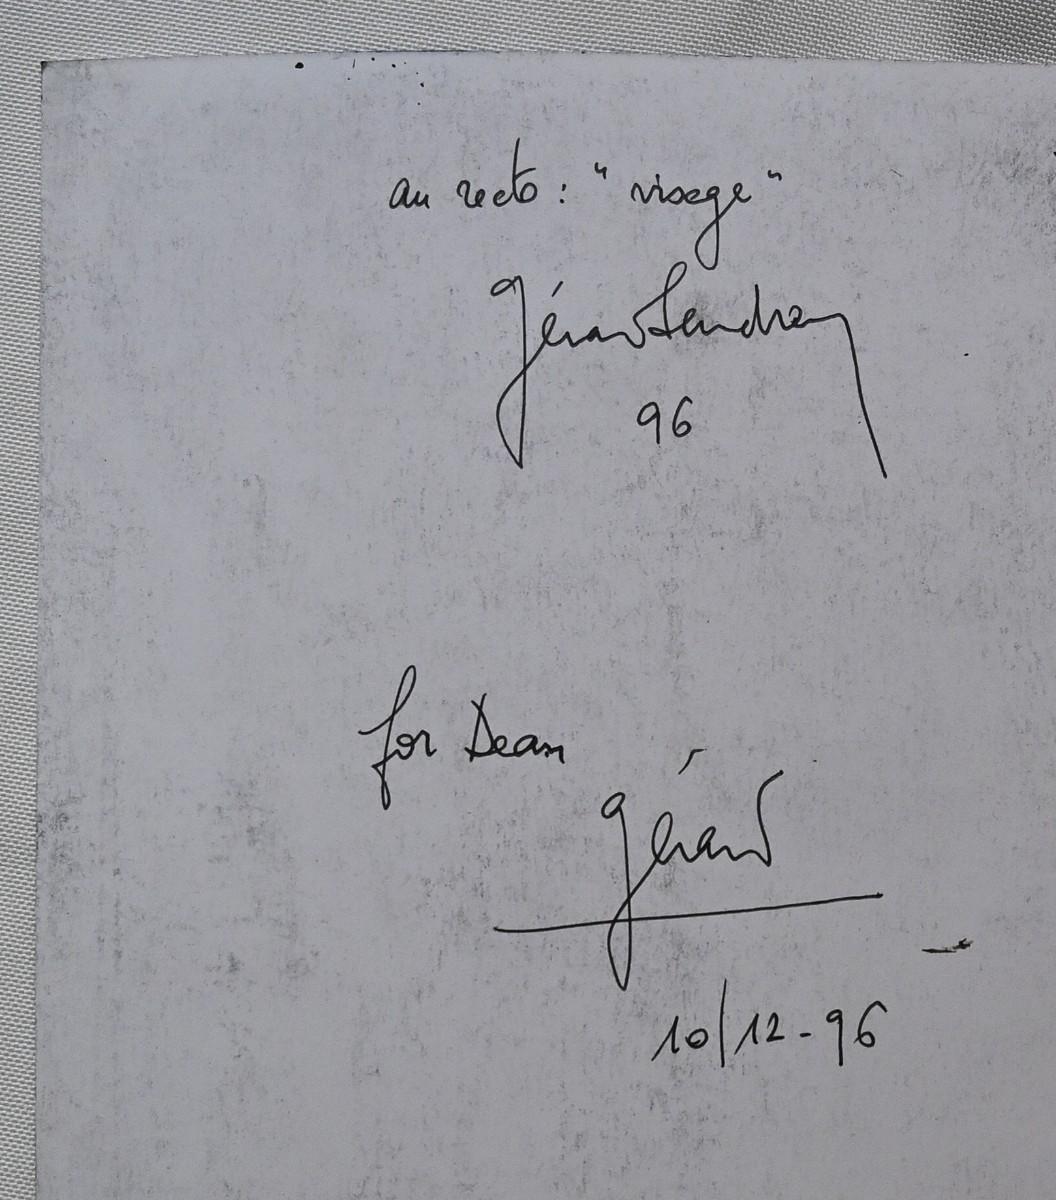 au recto : "visage"
Gérard Sendrey
96
for Dean
Gérard
10/12-96